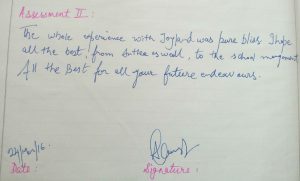 Assessment II :
The whole experience with Joyland was pure bliss. I hope
all the best, from as well, to the school
All the Best for all your future endeavours.
Date :
Signature :